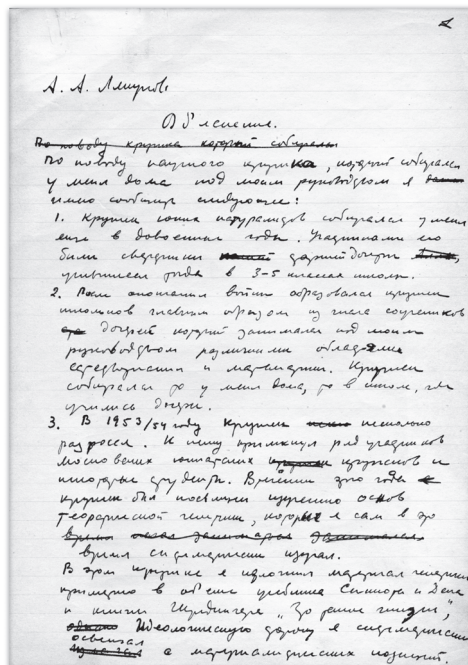 А. А. Ляпунов
Объяснение.
По поводу кружка который собирался
По поводу научного кружка, который собирался
у меня дома под моим руководством я
имею сообщить следующее:
1. Кружок юных натуралистов собирался у меня
еще в довоенные годы. Участниками его
были сверстники старшей дочери,
учившиеся тогда в 3-5 классах школы.
2. После окончания войны образовался кружок
школьников главным образом из числа соучеников
дочерей который занимался под моим
руководством различными областями
естествознания и математики. Кружок
собирался то у меня дома, то в школе, где
учились дочери.
3. В 1953/54 году кружок несколько
разросся. К нему примкнул ряд участников
московских юннатских кружков и
некоторые студенты. В течении этого года
кружок был посвящен изучению основ
теоретической генетики, которые я сам в то
время систематически изучал.
В этом кружке я изложил материал генетики
примерно в объеме учебника Синнота и Дена
и книги Шредингера „Что такое жизнь",
Идеологическую сторону я систематически
освещал
с материалистических позиций.